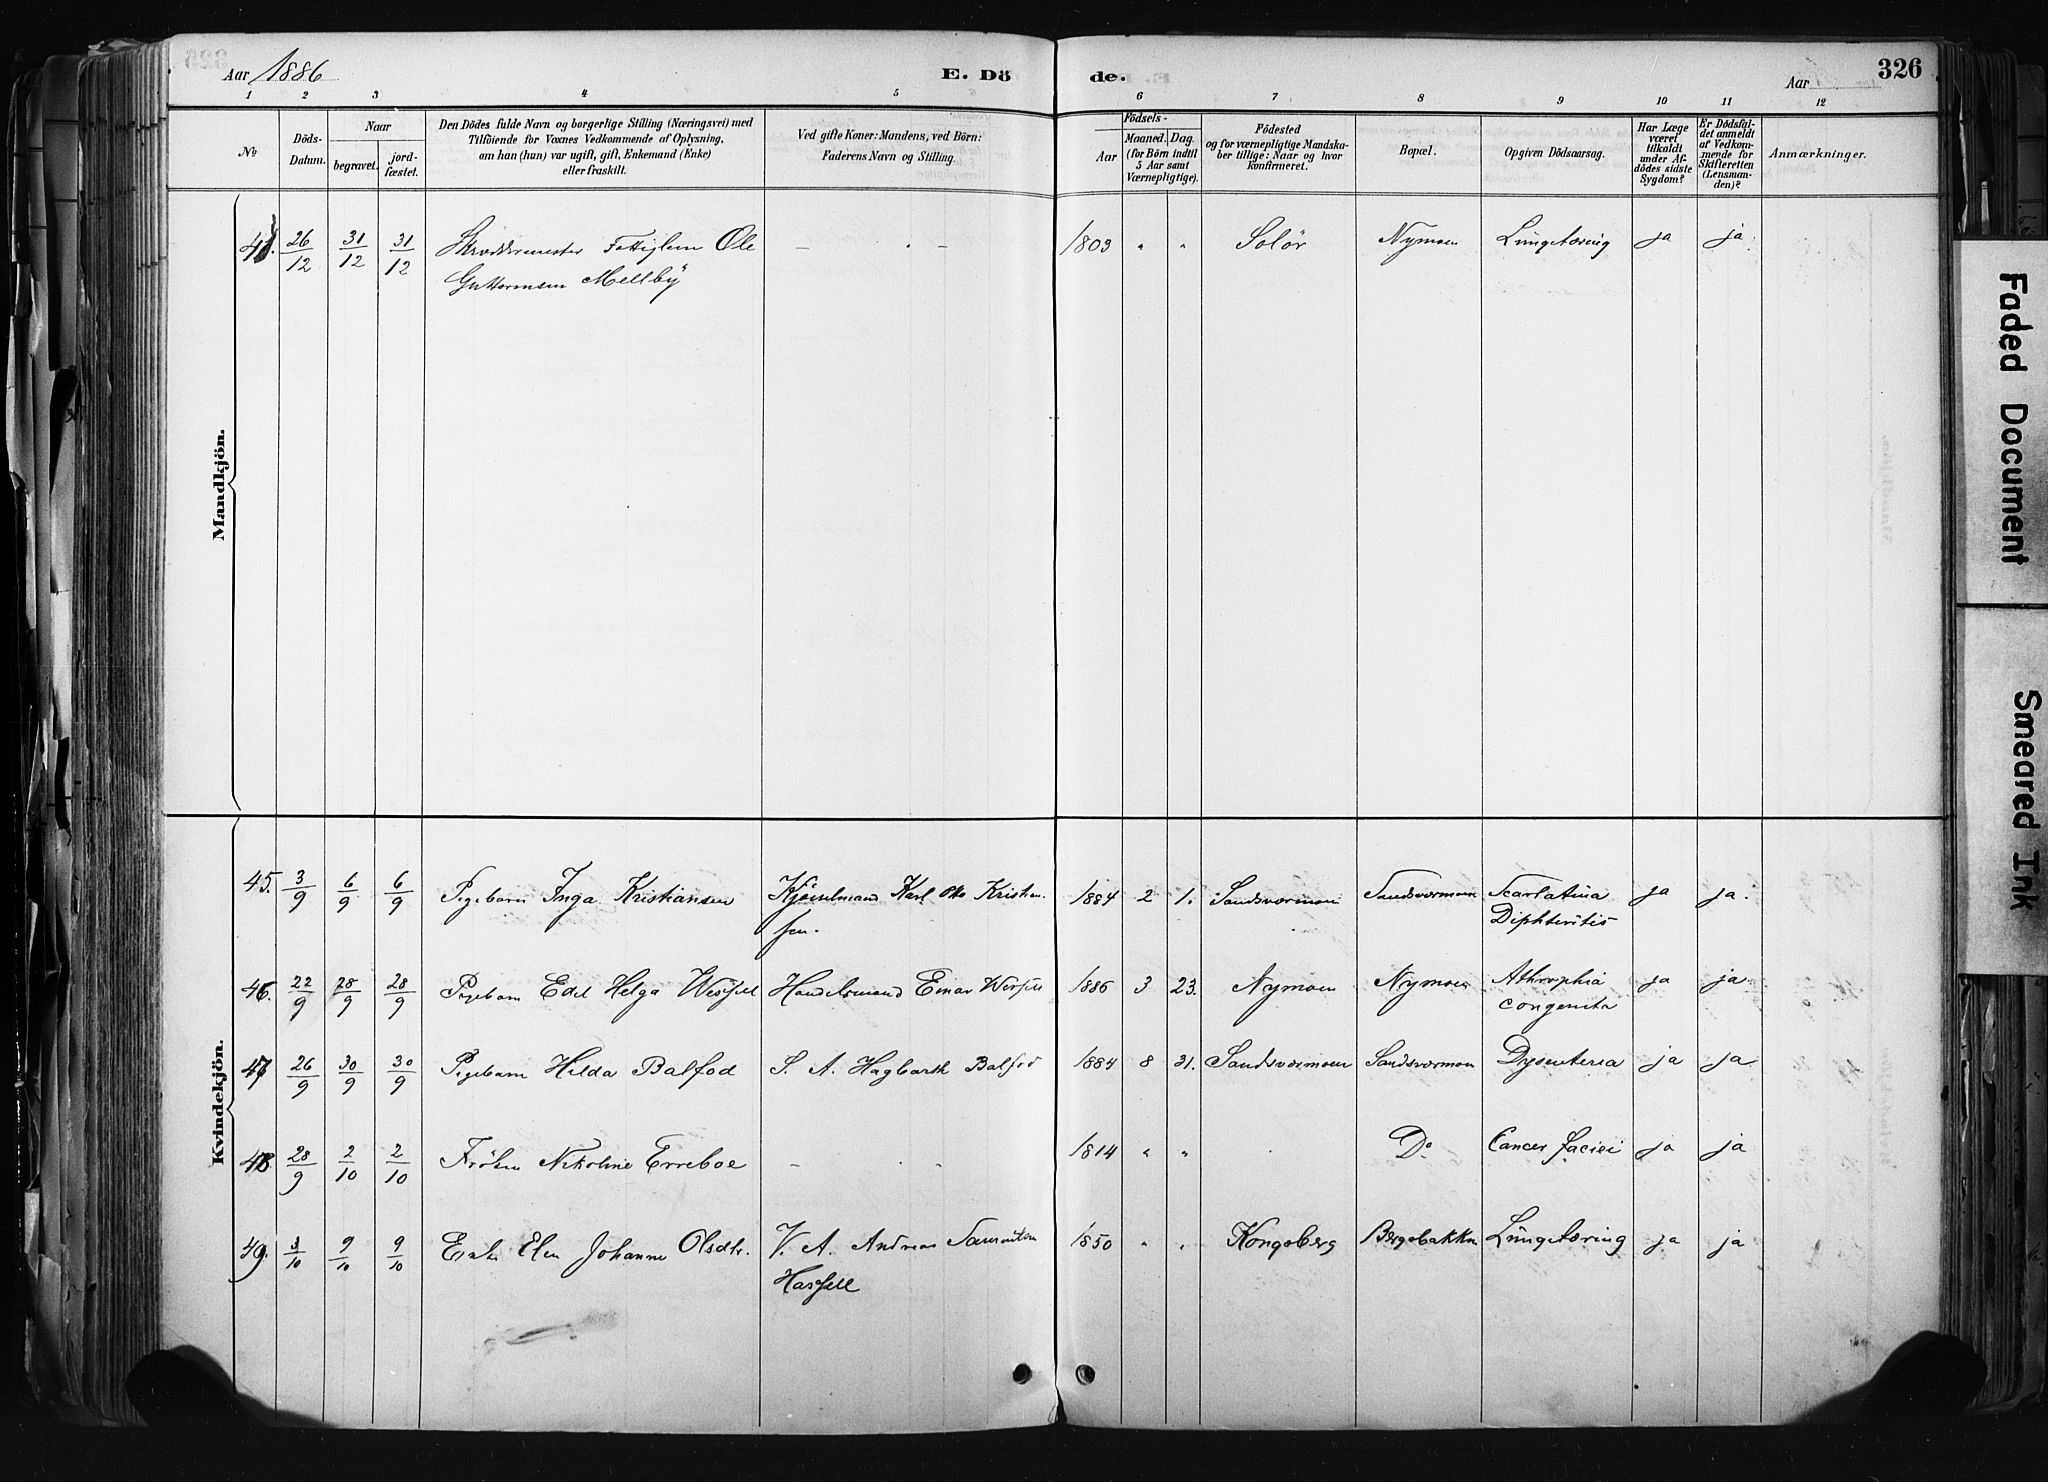 Aar 1886 E. Dö de. Aar 326
1 2 3 4 5 6 7 8 9 10 11 12
№
Döds-Datum.
Naar
begravet.
jordfæstet.
Den Dödes fulde Navn og borgerlige Stilling (Næringsvei) med
Tilföiende for Voxnes Vedkommende af Oplysning,
om han (hun) var ugift, gift, Enkemand (Enke)
eller fraskilt.
Ved gifte Koner: Mandens, ved Börn:
Faderens Navn og Stilling.
Födsels-
Aar
Maaned. Dag.
(for Börn indtil
5 Aar samt
Værnepligtige).
Födested
og for værnepligtige Mandskaber
tillige: Naar og hvor
konfirmeret.
Bopæl.
Opgiven Dödsaarsag.
Har Læge
været
tilkaldt
under Afdödes
sidste
Sygdom?
Er Dödsfaldet
anmeldt
af Vedkommende
for
Skifteretten
(Lensmanden)?
Anmærkninger.
Mandkjön.
26/12 31/12 31/12 Ole 1803 " " Solör Nymoen Lungetæring ja ja.
Guttormsen Mellby
Kvindekjön.
45. 3/9 6/9 6/9 Pigebarn Inga Kristiansen Karl Otto Kristian- 1884 2 1. Sandsværmoen Sandsværmoen Scarlatina ja ja.
sen. Diphteritis
46. 22/9 28/9 28/9 Pigebarn Edel Helga Handelsmand Einar 1886 3 23. Nymoen Nymoen Athrophia ja ja
congenita
47 26/9 30/9 30/9 Pigebarn Hilda Balfod S. A. Hagbarth Balfod 1884 8 31. Sandsværmoen Sandsværmoen Dysenteria ja ja
48 28/9 2/10 2/10 Fröken Nikoline Erreboe – 1814 " " Do Cancer faciei ja ja
49. 3/10 9/10 9/10 Enke Elen Johanne Olsdtr. V. A. Andreas 1850 " " Kongsberg Bergsbakken Lungetæring ja ja
Hassell
Faded Document
Smeared Ink